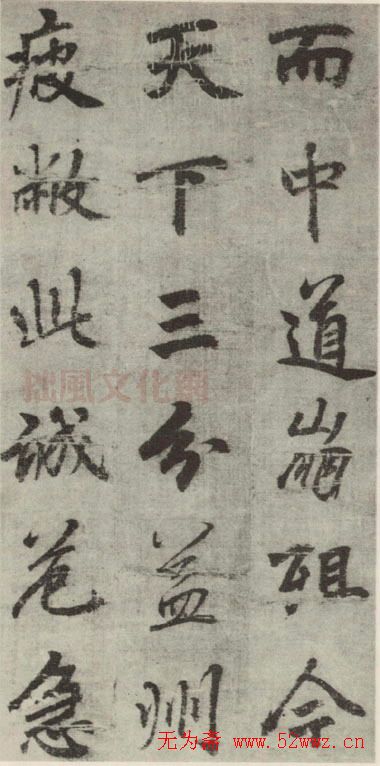 而中道崩殂今
天下三分益州
疲敝此誠危急
拙風文化網
无为斋 www.52wwz.cn